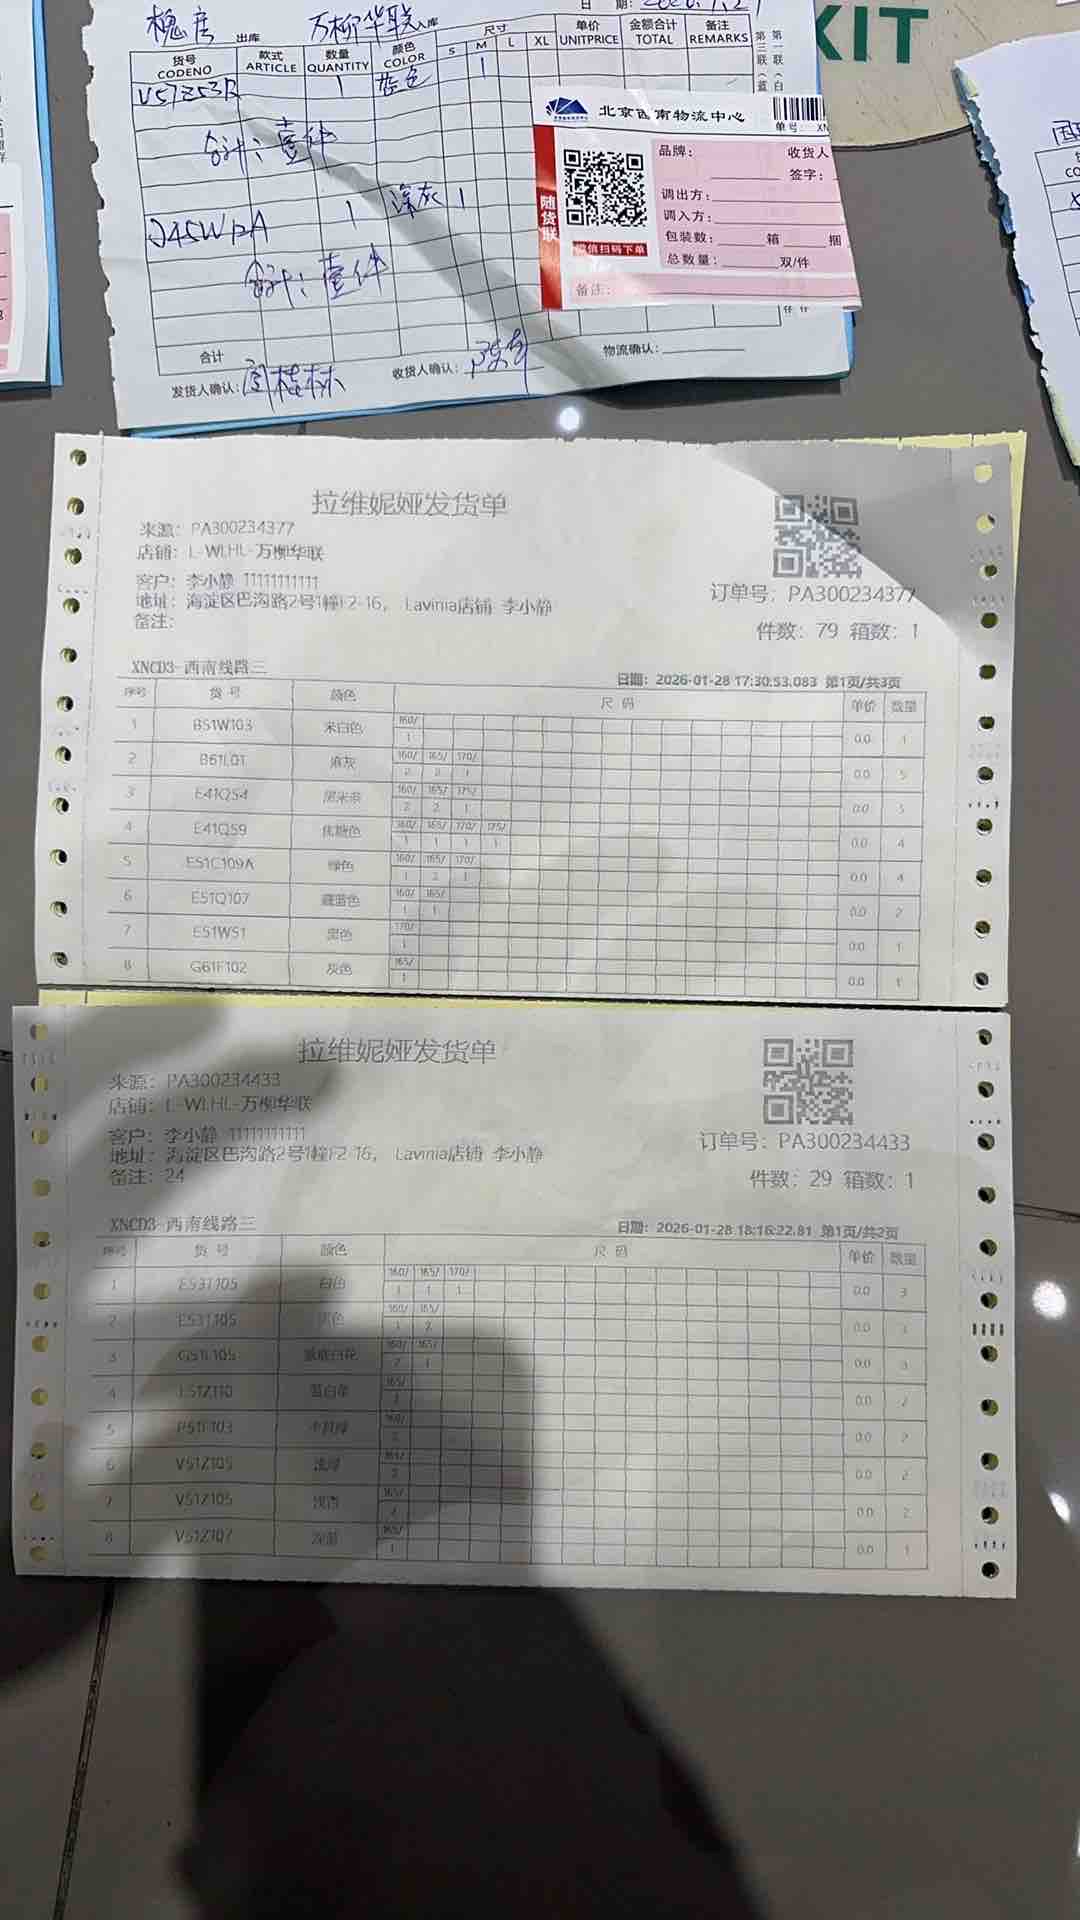 KIT
日 期：
出库 万柳华联 入库
货号 款式 数量 颜色 尺寸 单价 金额合计 备注
CODENO ARTICLE QUANTITY COLOR S M L XL UNITPRICE TOTAL REMARKS
1 1
合计：壹件
J45W12A 1 深灰 1
合计：壹件
合计
发货人确认： 收货人确认： 物流确认：
北京西南物流中心
单号：XN
随货联
微信扫码下单
品牌： 收货人
签字：
调出方：
调入方：
包装数： 箱 捆
总数量： 双/件
备注：
拉维妮娅发货单
来源：PA300234377
店铺：L-WLHL-万柳华联
客户：李小静 11111111111
地址：海淀区巴沟路2号1幢F2-16， Lavinia店铺 李小静
备注：
订单号：PA300234377
件数：79 箱数：1
XNCD3-西南线路三
日期：2026-01-28 17:30:53.083 第1页/共3页
序号 货 号 颜色 尺 码 单价 数量
1 B51W103 米白色 160/ 1 0.0 1
2 B61L01 麻灰 160/ 165/ 170/ 2 2 1 0.0 5
3 E41Q54 160/ 165/ 175/ 2 2 1 0.0 5
4 E41Q59 焦糖色 160/ 165/ 170/ 175/ 1 1 1 1 0.0 4
5 E51C109A 绿色 160/ 165/ 170/ 1 2 1 0.0 4
6 E51Q107 藏蓝色 160/ 165/ 1 1 0.0 2
7 E51W51 黑色 170/ 1 0.0 1
8 G61F102 灰色 165/ 1 0.0 1
拉维妮娅发货单
来源：PA300234433
店铺：L-WLHL-万柳华联
客户：李小静 11111111111
地址：海淀区巴沟路2号1幢F2-16， Lavinia店铺 李小静
备注：24
订单号：PA300234433
件数：29 箱数：1
XNCD3-西南线路三
日期：2026-01-28 18:16:22.81 第1页/共2页
序号 货 号 颜色 尺 码 单价 数量
1 E53T105 白色 160/ 165/ 170/ 1 1 1 0.0 3
2 E53T105 黑色 160/ 165/ 1 2 0.0 3
3 G51L105 160/ 165/ 2 1 0.0 3
4 165/ 2 0.0 2
5 160/ 2 0.0 2
6 V51Z105 165/ 2 0.0 2
7 V51Z105 浅杏 165/ 2 0.0 2
8 V51Z107 深蓝 165/ 1 0.0 1